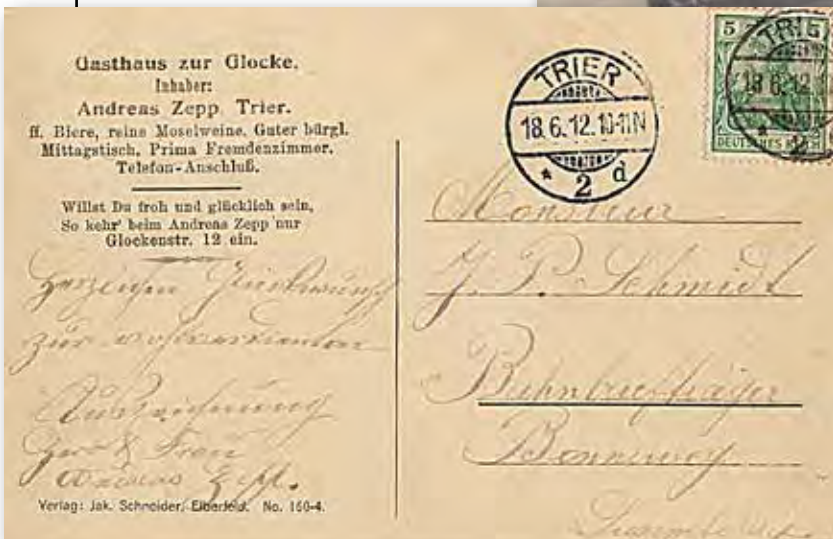 Gasthaus zur Glocke.
Inhaber:
Andreas Zepp Trier.
ff. Biere, reine Moselweine. Guter bürgl.
Mittagstisch. Prima Fremdenzimmer.
Telefon-Anschluß.
Willst Du froh und glücklich sein,
So kehr' beim Andreas Zepp nur
Glockenstr. 12 ein.
herzlichen Glückwunsch
zur wohlverdienten
Auszeichnung
Herr & Frau
Andreas Zepp.
Verlag: Jak. Schneider, Elberfeld. No. 160-4.
TRIER
18.6.12.10-11N
* 2 d
5
TRIER
18.6.12.
DEUTSCHES REICH
Monsieur
J. P. Schmidt
Bahnbriefträger
Bonneweg